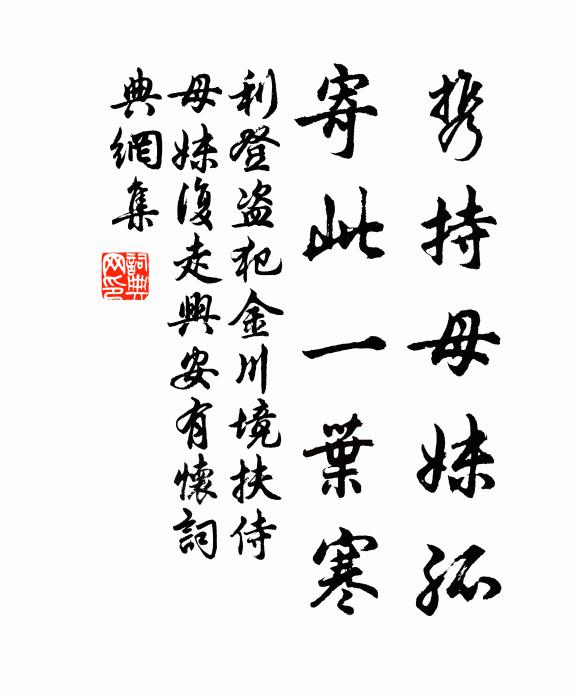 携持母妹孤
寄此一葉寒
利登盗犯金川境扶侍
母妹復走興安有懷詞
典網集
詞典
网印